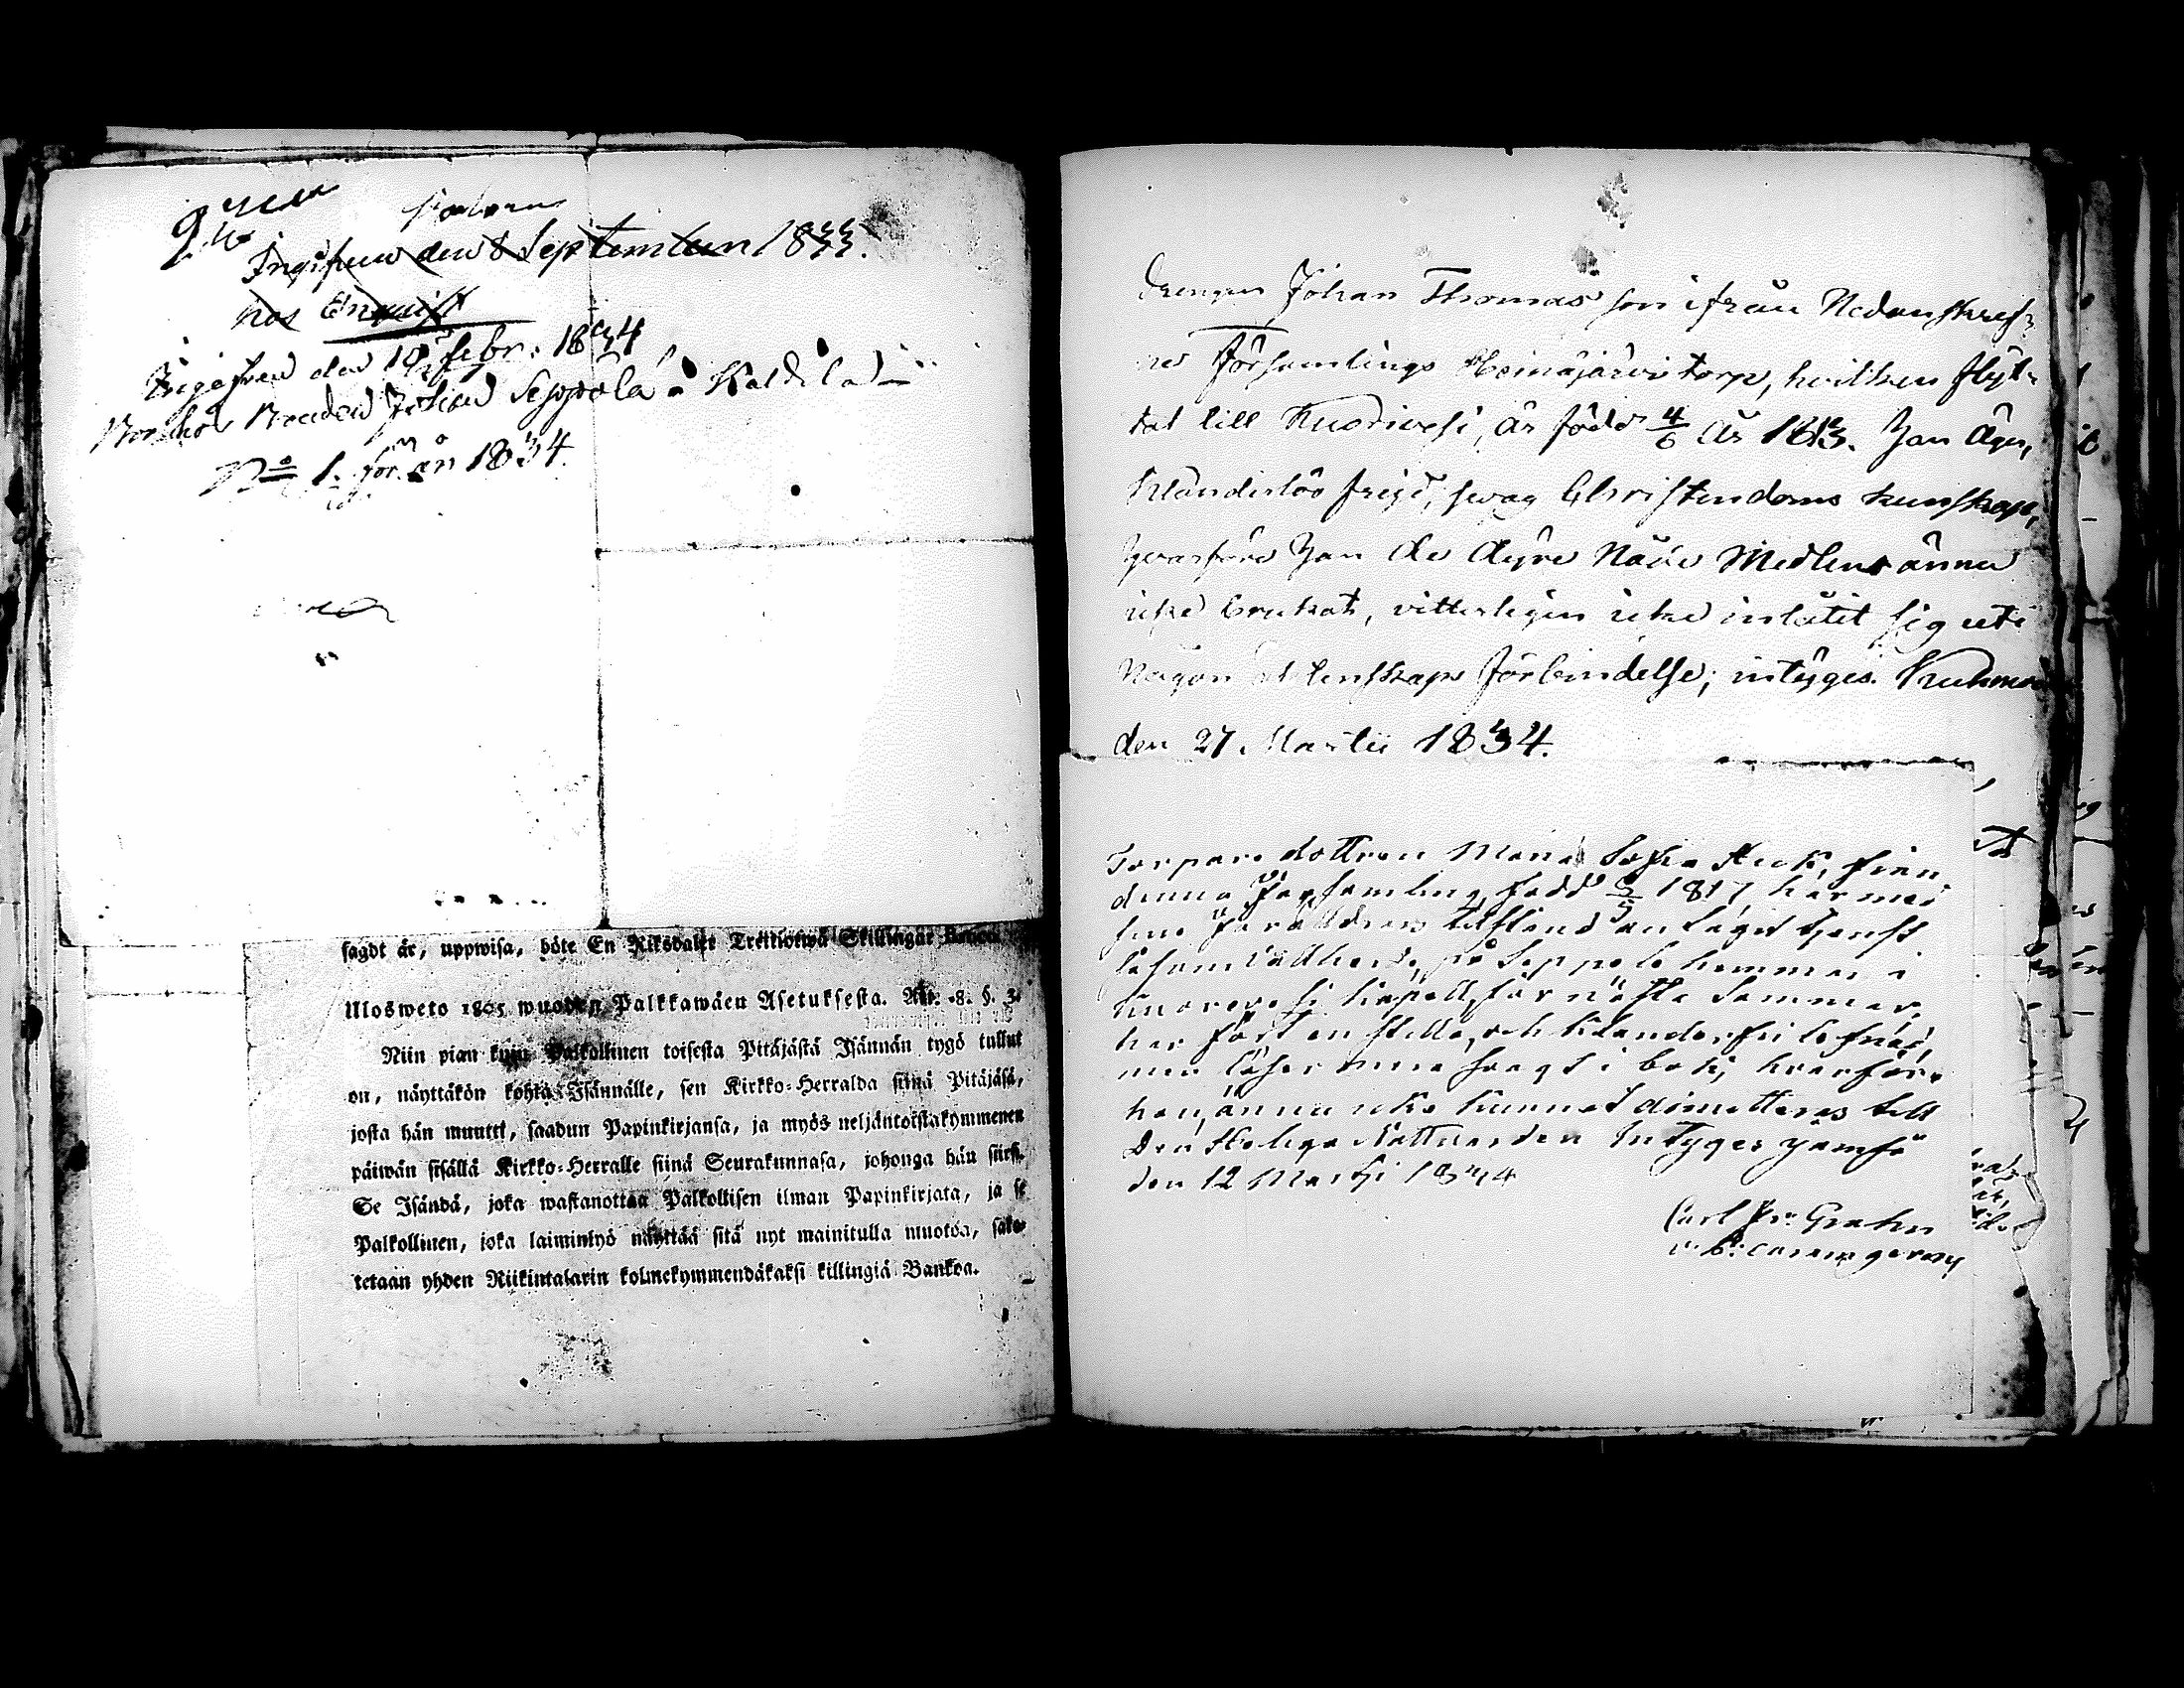 Ingifven den 8 September 1833.
hos Enqvist
Ingifven den 18 febr: 1834
Bor hos Bonden Johan Seppälä Kaldila
N:o 1. för år 1834.
sagdt är, uppwisa, böte En Riksdaler Trettiotwå Skillingar Banco.
Ulosweto 1805 wuoden Palkkawäen Asetuksesta. Art. 8. §. 3.
Niin pian kuin Palkollinen toisesta Pitäjästä Isännän tygö tullut
on, näyttäkön kohta Isännälle, sen Kirkko-Herralda siinä Pitäjäsä,
josta hän muutti, saadun Papinkirjansa, ja myös neljäntoistakymmenen
päiwän sisällä Kirkko-Herralle siinä Seurakunnasa, johonga hän siirsi.
Se Isändä, joka wastanottaa Palkollisen ilman Papinkirjata, ja se
Palkollinen, joka laiminlyö näyttää sitä nyt mainitulla muotoa, sako-
tetaan yhden Riikintalarin kolmekymmendäkaksi killingiä Bankoa.
Drengen Johan Thomas son ifrån Nedanskref-
ne Församlings Heinäjärvi torp, hvilken flyt-
tat till Kuorivesi, är född 4/6 år 1813. Han äger,
klanderlös frejd, svag Christendoms kunskap,
hvarföre han de dyre Nåde Medlen ännu
icke brukat, vitterligen icke inlåtit sig uti
Någon äktenskaps förbindelse; intygas. Kuhmois
den 27. Martii 1834.
Torpare dottren Maria Sofia Kuk, från
denna Församling född 5/5 1817, har med
sine Föräldrars tillstånd antagit tjenst
såsom Vallherde, på Seppälä hemman i
Kuorevesi kapell, för nästa Sommar,
har fört en stilla, och klanderfri lefnad,
men läser ännu svagt i bok, hvarföre
hon ännu icke kunnat admitteras till
Den Heliga Nattvarden Intygas Jämsä
den 12 Martii 1834
Carl Fr: Grahn